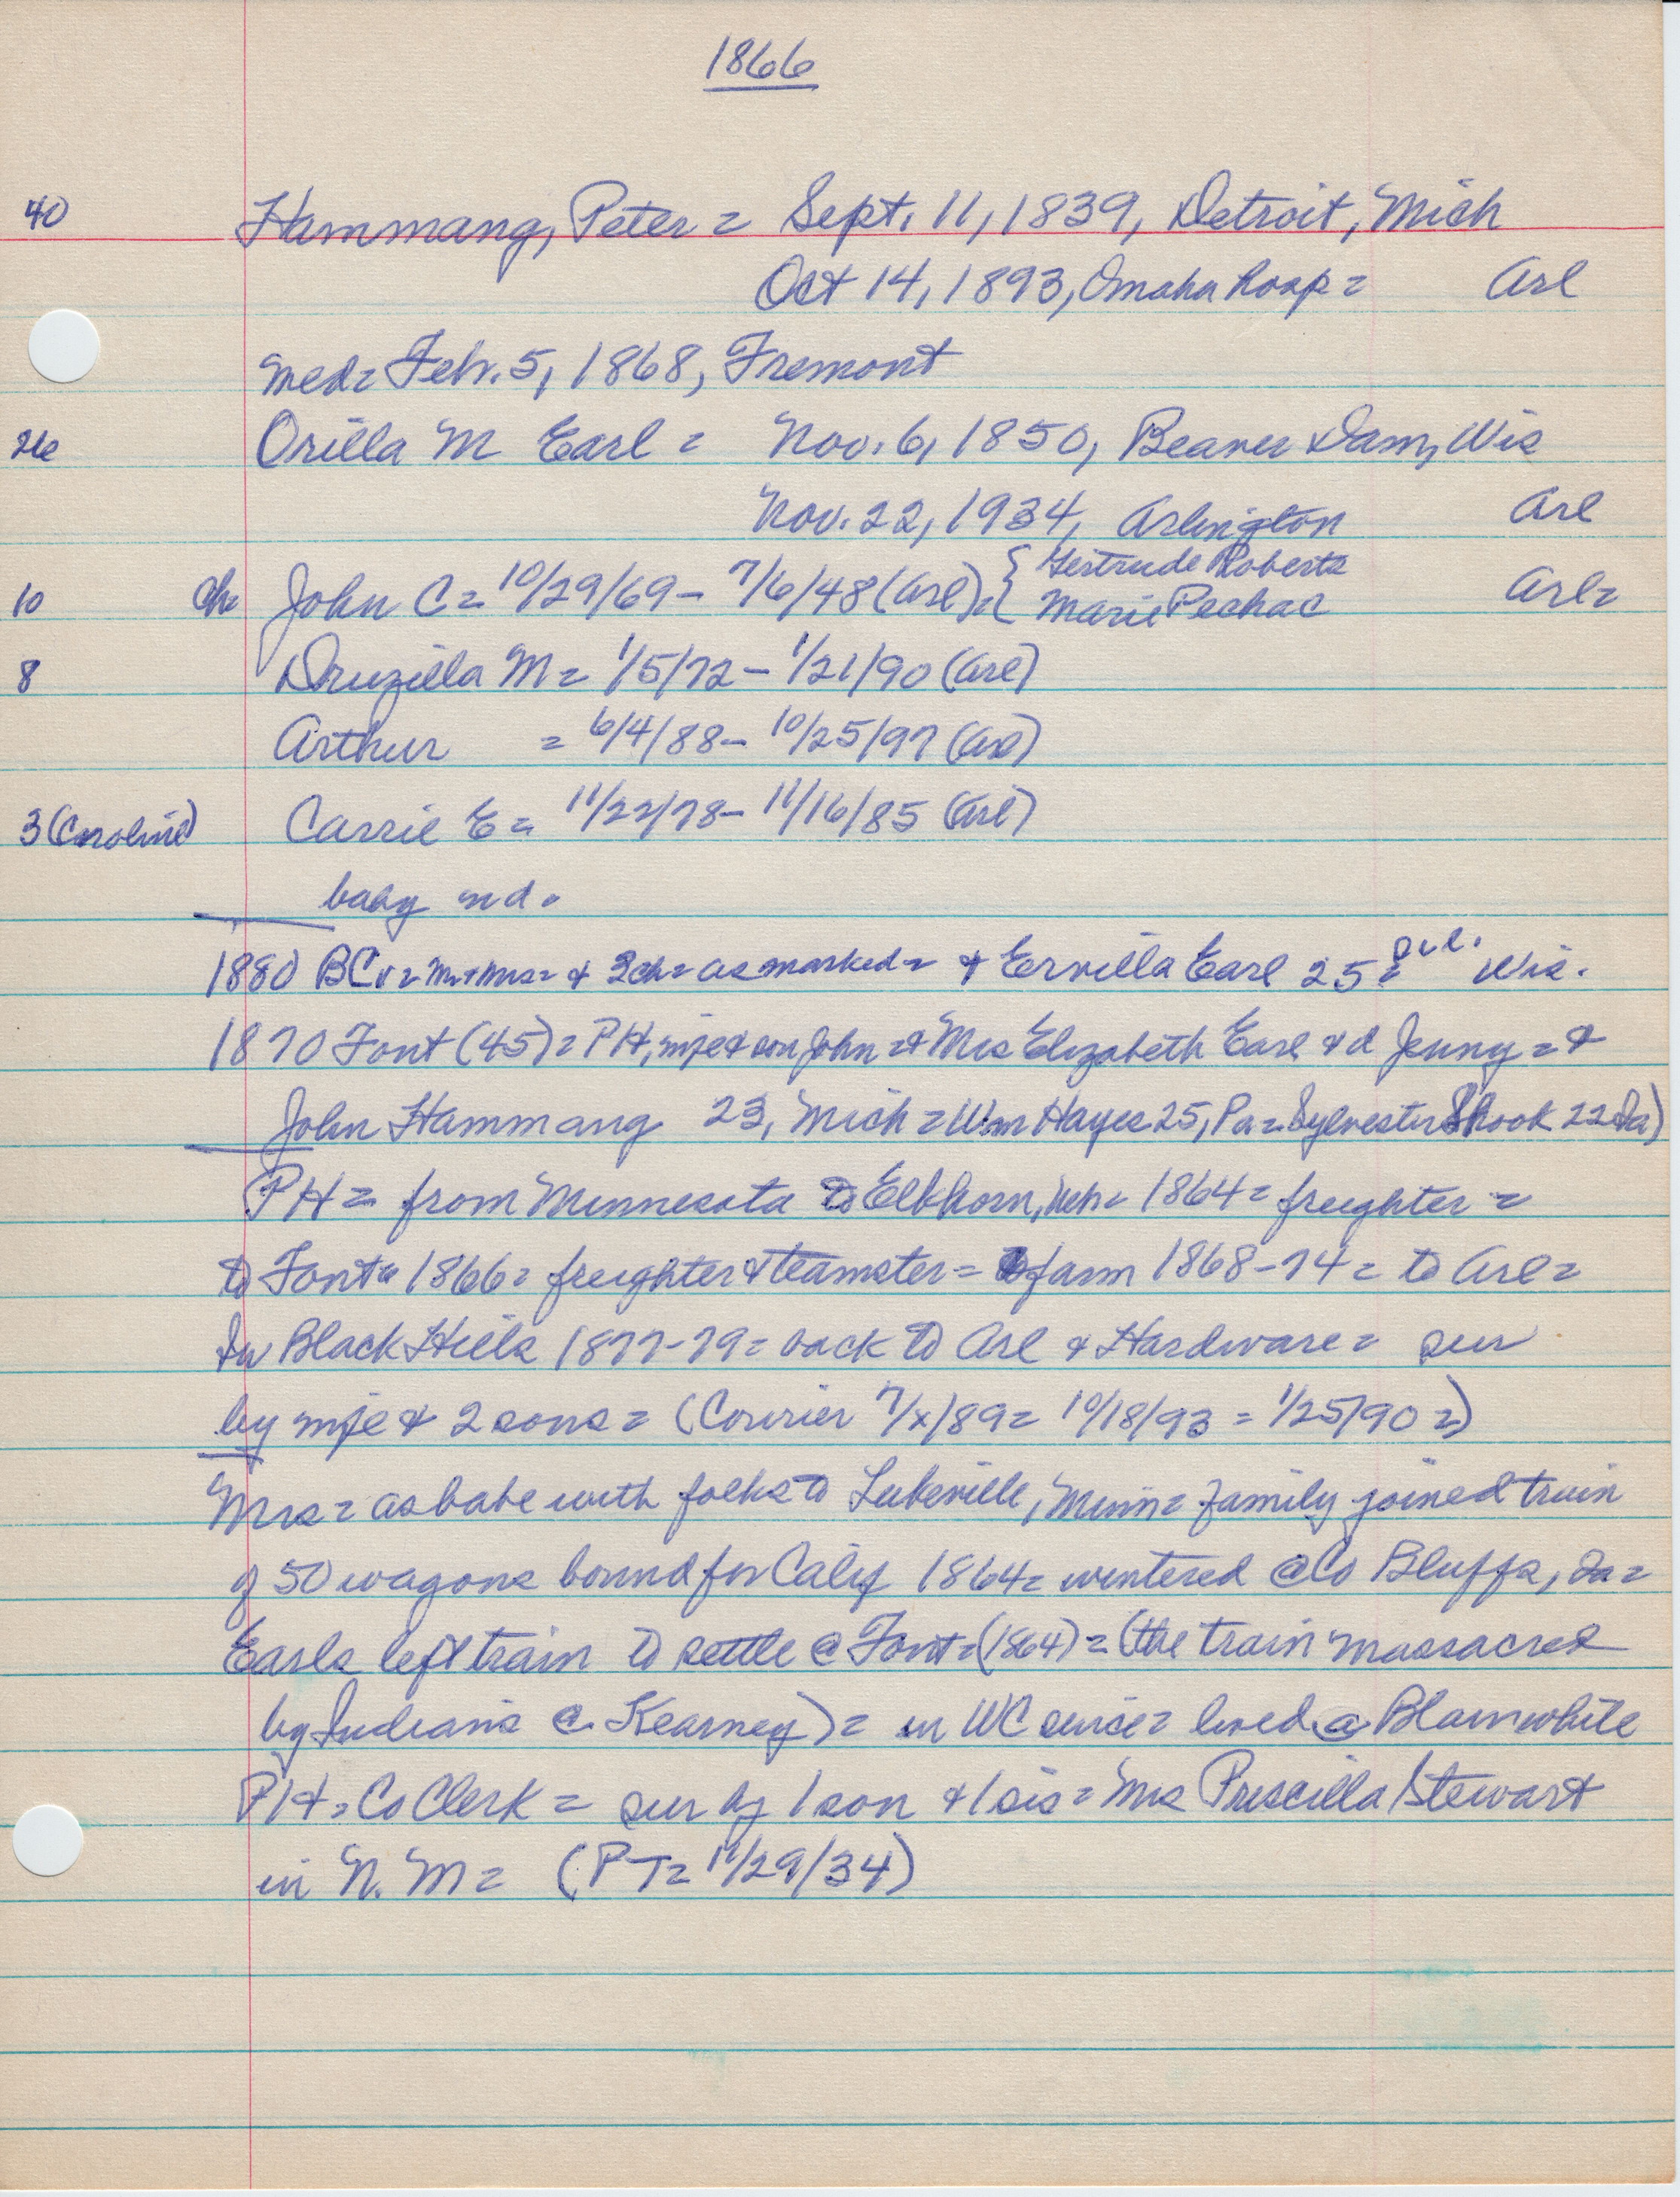 1866
40 Hammang, Peter = Sept. 11, 1839, Detroit, Mich
Oct 14, 1893, Omaha hosp = Arl
med = Feb. 5, 1868, Fremont
26 Orilla M Earl = Nov. 6, 1850, Beaver Dam, Wis
Nov. 22, 1934, Arlington Arl
10 ch = John C = 10/29/69 - 7/6/48 (Arl) = { Gertrude Roberts
Marie Pechac Arl =
8 Druzilla M = 1/5/72 - 1/21/90 (Arl)
Arthur = 6/4/88 - 10/25/97 (Arl)
3 (Caroline) Carrie E = 11/22/78 - 11/16/85 (Arl)
baby nd.
1880 BCr = Mr + Mrs = & 3 ch = as marked = & Ervilla Earl 25 = Wis.
1870 Font (45) = PH, wife & son John = & Mrs Elizabeth Earl & d Jenny = &
John Hammang 23, Mich = Wm Hayes 25, Pa = Sylvester Shook 22 Ia)
PH = from Minnesota to Elkhorn, Neb = 1864 = freighter =
to Font 1866 = freighter & teamster = farm 1868-74 = to Arl =
In Black Hills 1877-79 = back to Arl & Hardware = sur
by wife & 2 sons = (Courier 7/x/89 = 10/18/93 = 1/25/90 =)
Mrs = as babe with folks to Lukeville, Minn = family joined train
of 50 wagons bound for Calif 1864 = wintered @ Co Bluffs, Ia =
Earls left train to settle @ Font = (1864) = (the train massacred
by Indians @ Kearney) = in WC since = lived @ Blair while
PH = Co Clerk = sur by 1 son & 1 sis = Mrs Priscilla Stewart
in N. M = (PT = 11/29/34)